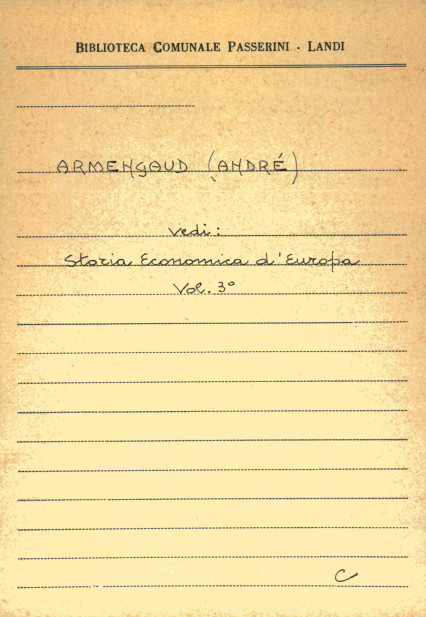 BIBLIOTECA COMUNALE PASSERINI - LANDI
ARMENGAUD (ANDRÉ)
vedi:
Storia Economica d'Europa
Vol. 3°
C